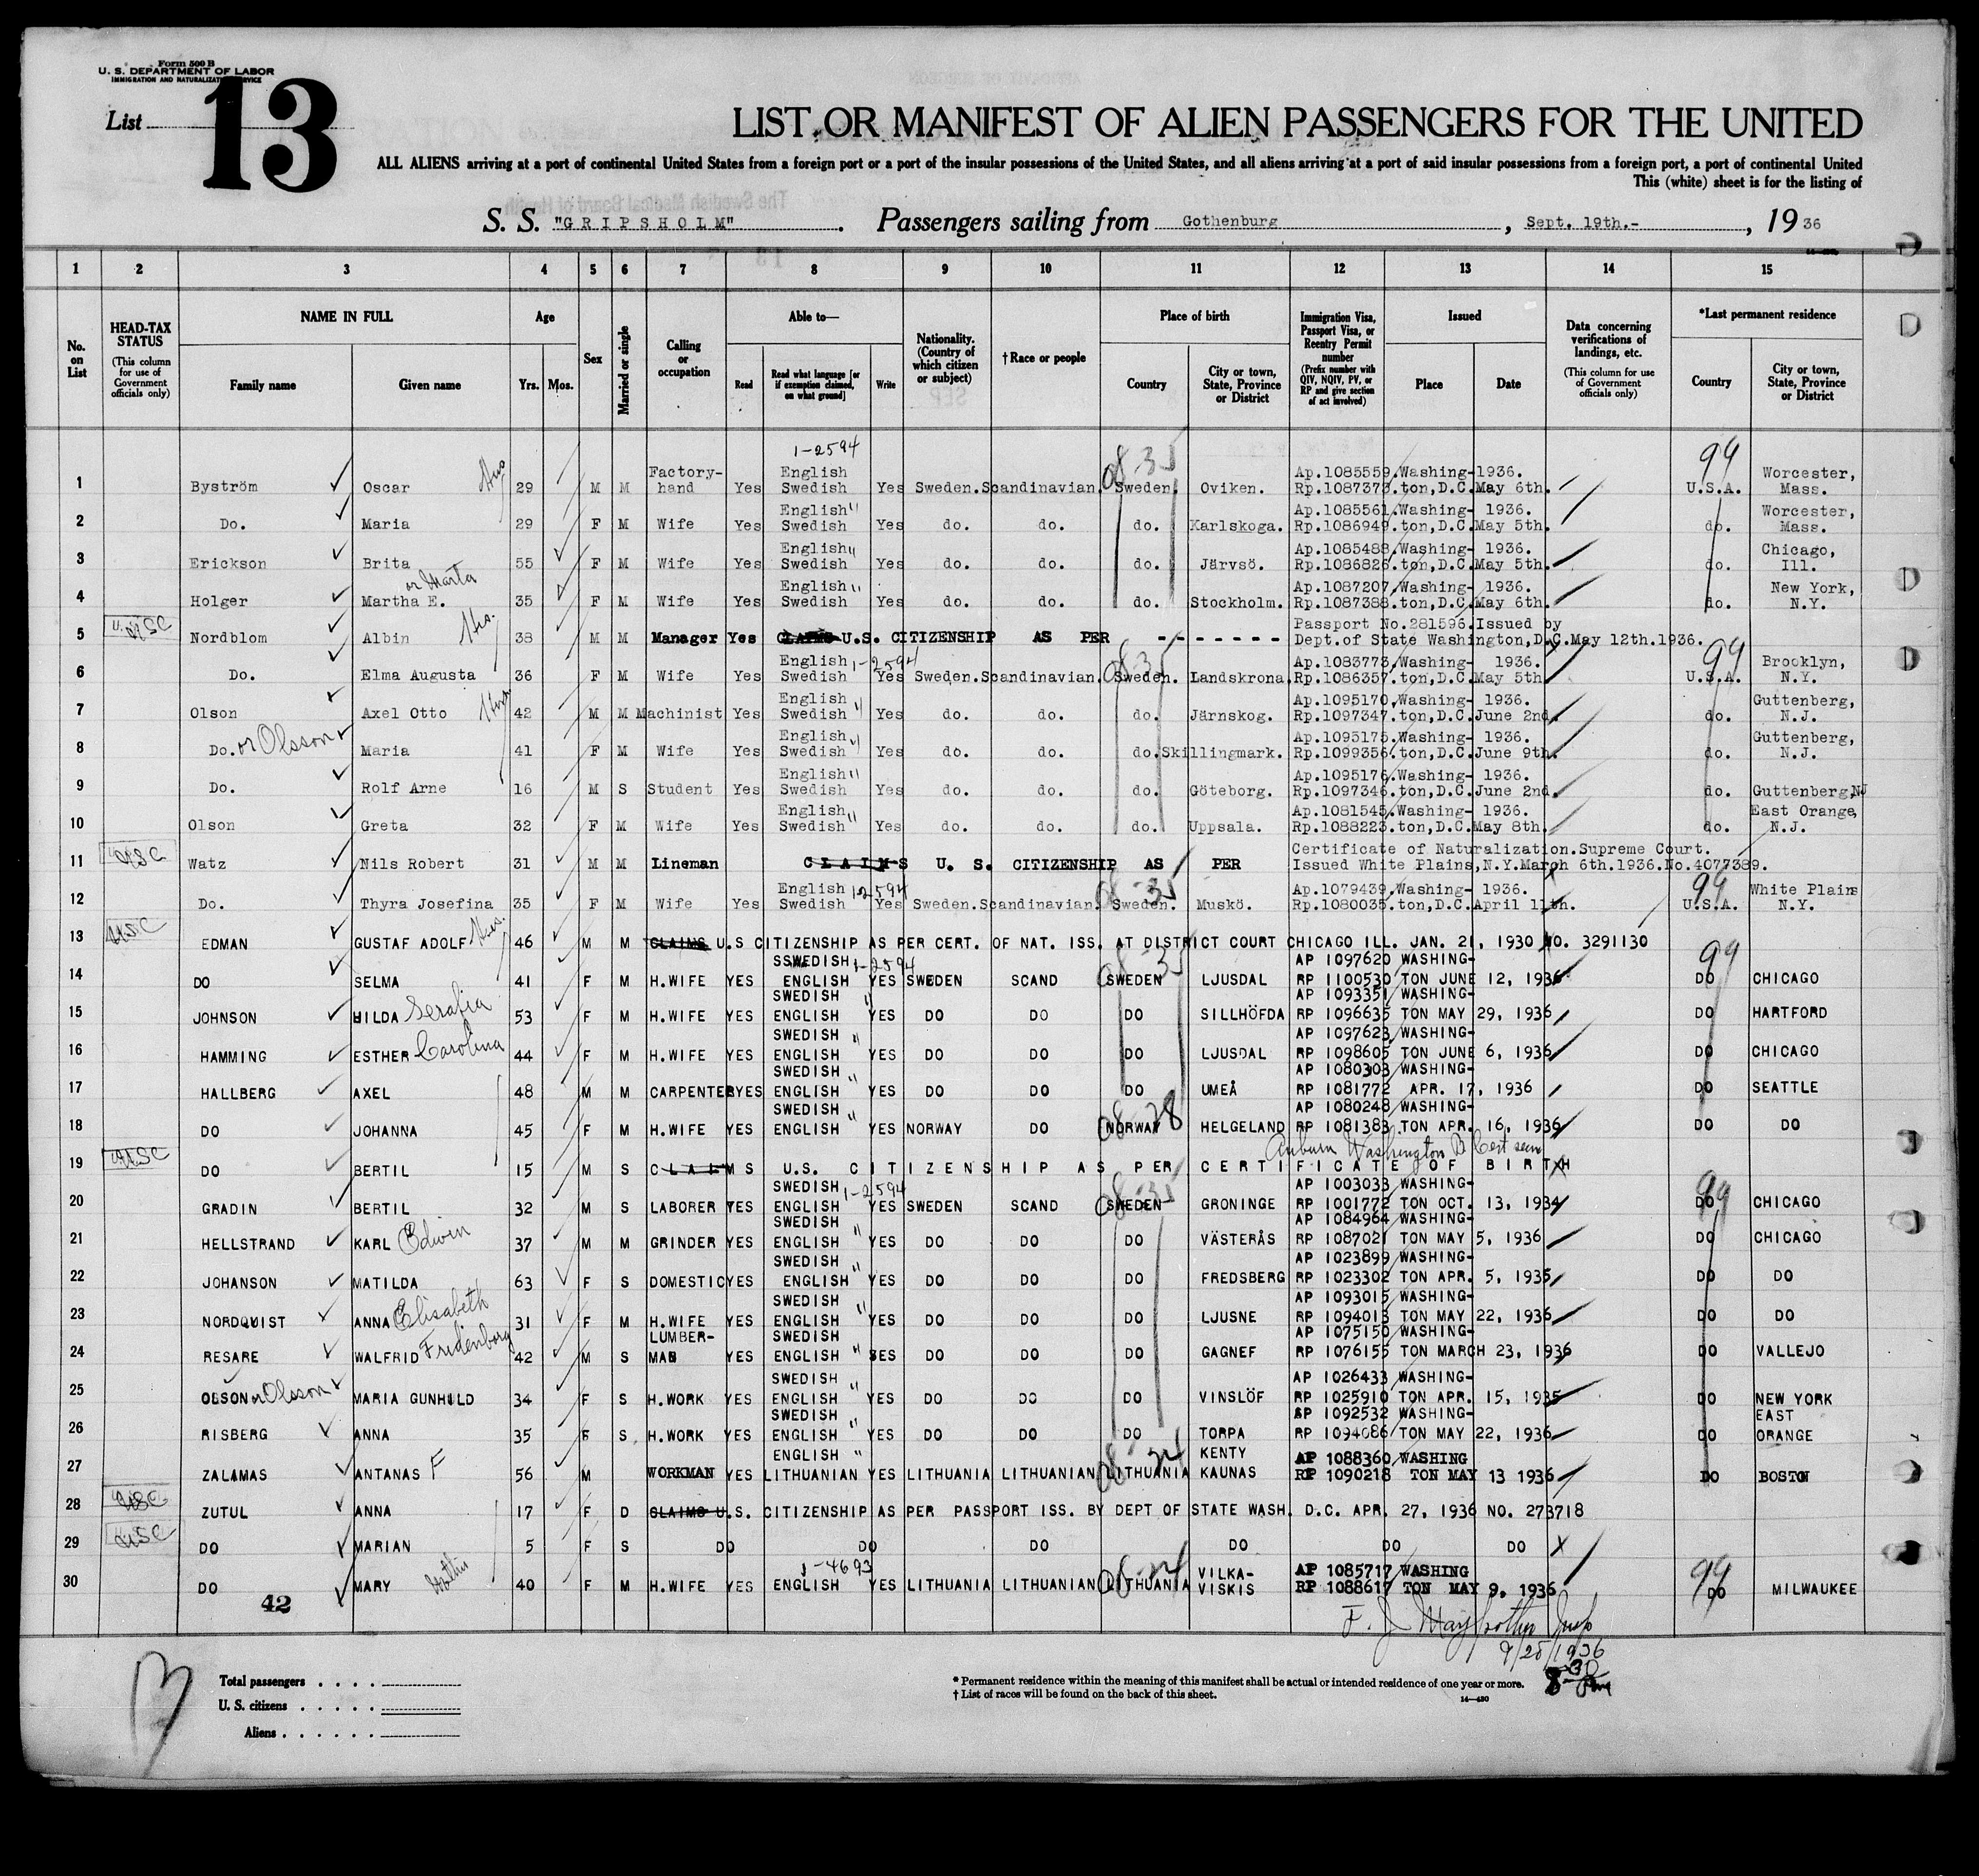 Form 500 B
U. S. DEPARTMENT OF LABOR
IMMIGRATION AND NATURALIZATION SERVICE
List 13
LIST OR MANIFEST OF ALIEN PASSENGERS FOR THE UNITED
ALL ALIENS arriving at a port of continental United States from a foreign port or a port of the insular possessions of the United States, and all aliens arriving at a port of said insular possessions from a foreign port, a port of continental United
This (white) sheet is for the listing of
S. S. "GRIPSHOLM". Passengers sailing from Gothenburg, Sept. 19th.-, 1936
1 2 3 4 5 6 7 8 9 10 11 12 13 14 15
No. on List
HEAD-TAX STATUS (This column for use of Government officials only)
NAME IN FULL Family name Given name
Age Yrs. Mos.
Sex
Married or single
Calling or occupation
Able to— Read Read what language [or if exemption claimed, on what ground] Write
Nationality. (Country of which citizen or subject)
† Race or people
Place of birth Country City or town, State, Province or District
Immigration Visa, Passport Visa, or Reentry Permit number (Prefix number with QIV, NQIV, PV, or RP and give section of act involved)
Issued Place Date
Data concerning verifications of landings, etc. (This column for use of Government officials only)
*Last permanent residence Country City or town, State, Province or District
1-2594
08-35 99
1 Byström Oscar Hus 29 M M Factory-hand Yes English Swedish Yes Sweden. Scandinavian. Sweden. Oviken. Ap.1085559.Washing-1936. Rp.1087378.ton,D.C.May 6th. U.S.A. Worcester, Mass.
2 Do. Maria 29 F M Wife Yes English " Swedish Yes do. do. do. Karlskoga. Ap.1085561.Washing- 1936. Rp.1086949.ton,D.C.May 5th. do. Worcester, Mass.
3 Erickson Brita 55 F M Wife Yes English " Swedish Yes do. do. do. Järvsö. Ap.1085488.Washing- 1936. Rp.1086826.ton,D.C.May 5th. do. Chicago, Ill.
4 Holger Martha E. or Marta 35 F M Wife Yes English " Swedish Yes do. do. do. Stockholm. Ap.1087207.Washing- 1936. Rp.1087388.ton,D.C.May 6th. do. New York, N.Y.
5 USC Nordblom Albin Hus. 38 M M Manager Yes CLAIMS U.S. CITIZENSHIP AS PER - - - - - - - Passport No.281596.Issued by Dept.of State Washington,D.C.May 12th.1936.
6 Do. Elma Augusta 36 F M Wife Yes English 1-2594 Swedish Yes Sweden. Scandinavian. 08-35 Sweden. Landskrona. Ap.1083773.Washing- 1936. Rp.1086357.ton,D.C.May 5th. 99 U.S.A. Brooklyn, N.Y.
7 Olson Axel Otto Hus 42 M M Machinist Yes English Swedish " Yes do. do. do. Järnskog. Ap.1095170.Washing- 1936. Rp.1097347.ton,D.C.June 2nd. do. Guttenberg, N.J.
8 Do. or Olsson Maria 41 F M Wife Yes English Swedish " Yes do. do. do. Skillingmark. Ap.1095175.Washing- 1936. Rp.1099356.ton,D.C.June 9th. do. Guttenberg, N.J.
9 Do. Rolf Arne 16 M S Student Yes English " Swedish Yes do. do. do. Göteborg. Ap.1095176.Washing- 1936. Rp.1097346.ton,D.C.June 2nd. do. Guttenberg,NJ
10 Olson Greta 32 F M Wife Yes English Swedish " Yes do. do. do. Uppsala. Ap.1081545.Washing- 1936. Rp.1088223.ton,D.C.May 8th. do. East Orange, N.J.
11 USC Watz Nils Robert 31 M M Lineman CLAIMS U. S. CITIZENSHIP AS PER Certificate of Naturalization.Supreme Court. Issued White Plains,N.Y.March 6th.1936.No.4077389.
12 Do. Thyra Josefina 35 F M Wife Yes English 1-2594 Swedish Yes Sweden. Scandinavian. 08-35 Sweden. Muskö. Ap.1079439.Washing- 1936. Rp.1080035.ton,D.C.April 11th. 99 U.S.A. White Plains N.Y.
13 USC EDMAN GUSTAF ADOLF Hus. 46 M M CLAIMS U.S CITIZENSHIP AS PER CERT. OF NAT. ISS. AT DISTRICT COURT CHICAGO ILL. JAN. 21, 1930 NO. 3291130
14 DO SELMA 41 F M H.WIFE YES SSWEDISH 1-2594 ENGLISH YES SWEDEN SCAND 08-35 SWEDEN LJUSDAL AP 1097620 WASHING- RP 1100530 TON JUNE 12, 1936 99 DO CHICAGO
15 JOHNSON HILDA Serafia 53 F M H.WIFE YES SWEDISH " ENGLISH YES DO DO DO SILLHÖFDA AP 1093351 WASHING- RP 1096635 TON MAY 29, 1936 DO HARTFORD
16 HAMMING ESTHER Carolina 44 F M H.WIFE YES SWEDISH " ENGLISH YES DO DO DO LJUSDAL AP 1097623 WASHING- RP 1098605 TON JUNE 6, 1936 DO CHICAGO
17 HALLBERG AXEL 48 M M CARPENTER YES SWEDISH ENGLISH " YES DO DO DO UMEÅ AP 1080303 WASHING- RP 1081772 APR. 17, 1936 DO SEATTLE
18 DO JOHANNA 45 F M H.WIFE YES SWEDISH " ENGLISH YES NORWAY DO 08-28 NORWAY HELGELAND AP 1080248 WASHING- RP 1081383 TON APR. 16, 1936 DO DO
Auburn Washington B Cert seen
19 USC DO BERTIL 15 M S CLAIMS U.S. CITIZENSHIP AS PER CERTIFICATE OF BIRTH
20 GRADIN BERTIL 32 M S LABORER YES SWEDISH 1-2594 ENGLISH YES SWEDEN SCAND 08-35 SWEDEN GRONINGE AP 1003033 WASHING- RP 1001772 TON OCT. 13, 1934 99 DO CHICAGO
21 HELLSTRAND KARL Edwin 37 M M GRINDER YES SWEDISH " ENGLISH YES DO DO DO VÄSTERÅS AP 1084964 WASHING- RP 1087021 TON MAY 5, 1936 DO CHICAGO
22 JOHANSON MATILDA 63 F S DOMESTIC YES SWEDISH ENGLISH " YES DO DO DO FREDSBERG AP 1023899 WASHING- RP 1023302 TON APR. 5, 1935 DO DO
23 NORDQUIST ANNA Elisabeth 31 F M H.WIFE YES SWEDISH " ENGLISH YES DO DO DO LJUSNE AP 1093015 WASHING- RP 1094013 TON MAY 22, 1936 DO DO
24 RESARE WALFRID Fridenborg 42 M S LUMBER-MAN YES SWEDISH ENGLISH " YES DO DO DO GAGNEF AP 1075150 WASHING- RP 1076155 TON MARCH 23, 1936 DO VALLEJO
25 OLSON or Olsson MARIA GUNHILD 34 F S H.WORK YES SWEDISH ENGLISH " YES DO DO DO VINSLÖF AP 1026433 WASHING- RP 1025910 TON APR. 15, 1935 DO NEW YORK
26 RISBERG ANNA 35 F S H.WORK YES SWEDISH " ENGLISH YES DO DO DO TORPA AP 1092532 WASHING- RP 1094086 TON MAY 22, 1936 DO EAST ORANGE
27 ZALAMAS ANTANAS F 56 M WORKMAN YES ENGLISH " LITHUANIAN YES LITHUANIA LITHUANIAN LITHUANIA KENTY KAUNAS AP 1088360 WASHING RP 1090218 TON MAY 13 1936 DO BOSTON
28 USC ZUTUL ANNA 17 F D CLAIMS U.S. CITIZENSHIP AS PER PASSPORT ISS. BY DEPT OF STATE WASH. D.C. APR. 27, 1936 NO. 273718
29 USC DO MARIAN 5 F S DO DO DO DO DO DO X
30 DO MARY Mother 40 F M H.WIFE YES 1-4693 ENGLISH YES LITHUANIA LITHUANIAN LITHUANIA VILKA-VISKIS AP 1085717 WASHING RP 1088617 TON MAY 9, 1936 99 DO MILWAUKEE
42
9/28/1936
8-30
13
Total passengers . . . .
U. S. citizens . . . . .
Aliens . . . . . .
* Permanent residence within the meaning of this manifest shall be actual or intended residence of one year or more.
† List of races will be found on the back of this sheet.
14—430